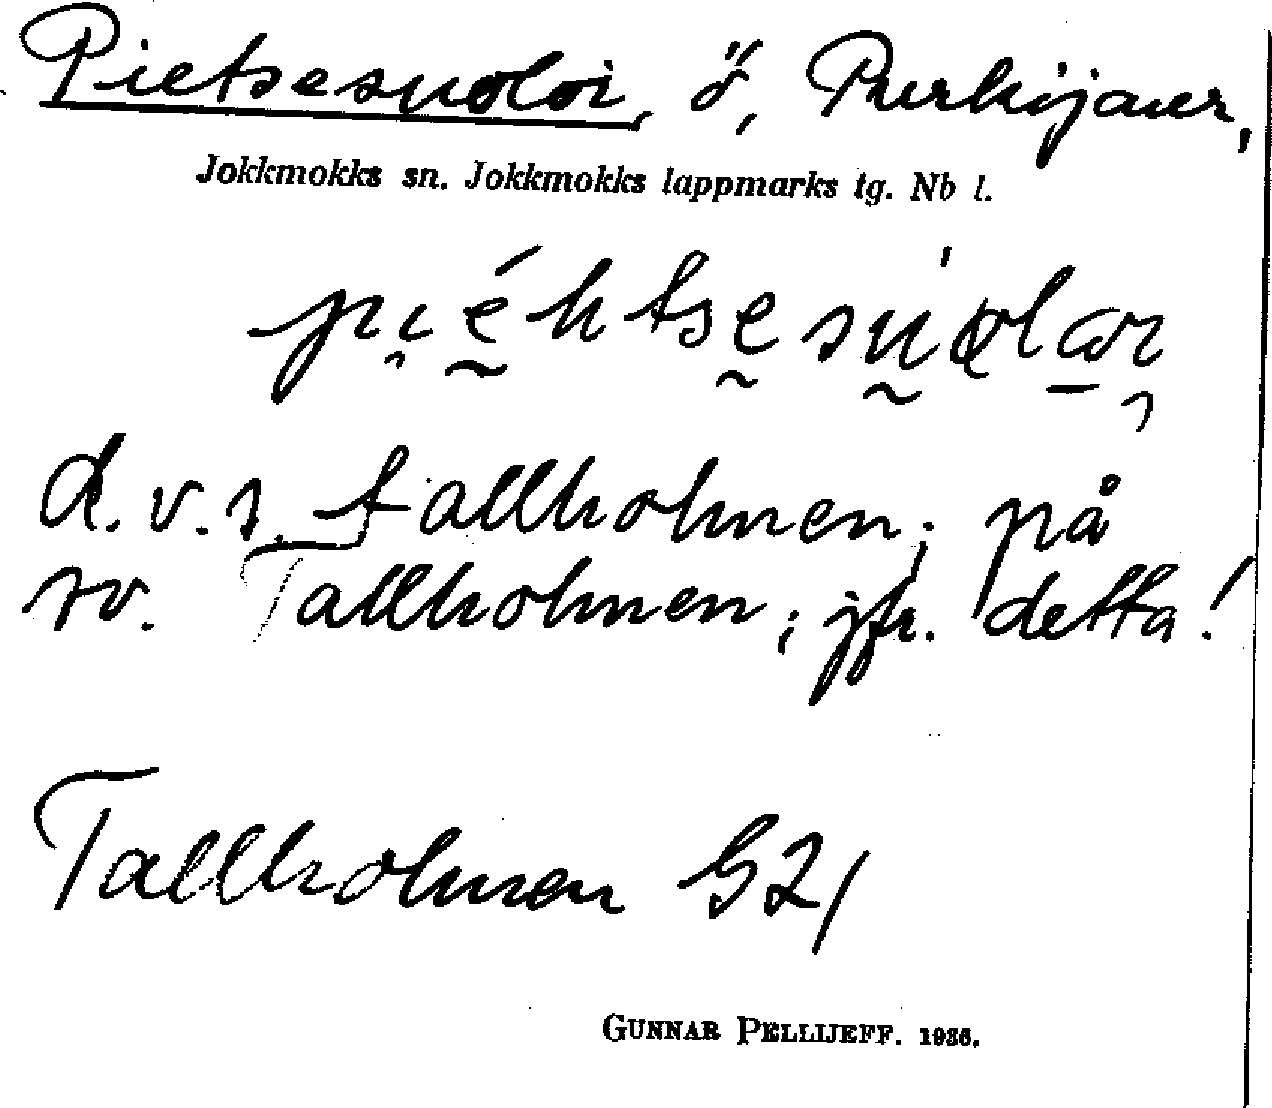 Pietsesuoloi, ö, Purkijaur,
Jokkmokks sn. Jokkmokks lappmarks tg. Nb l.
d.v.s. tallholmen; på
sv. Tallholmen; jfr. detta!
Tallholmen G21
GUNNAR PELLIJEFF. 1936.